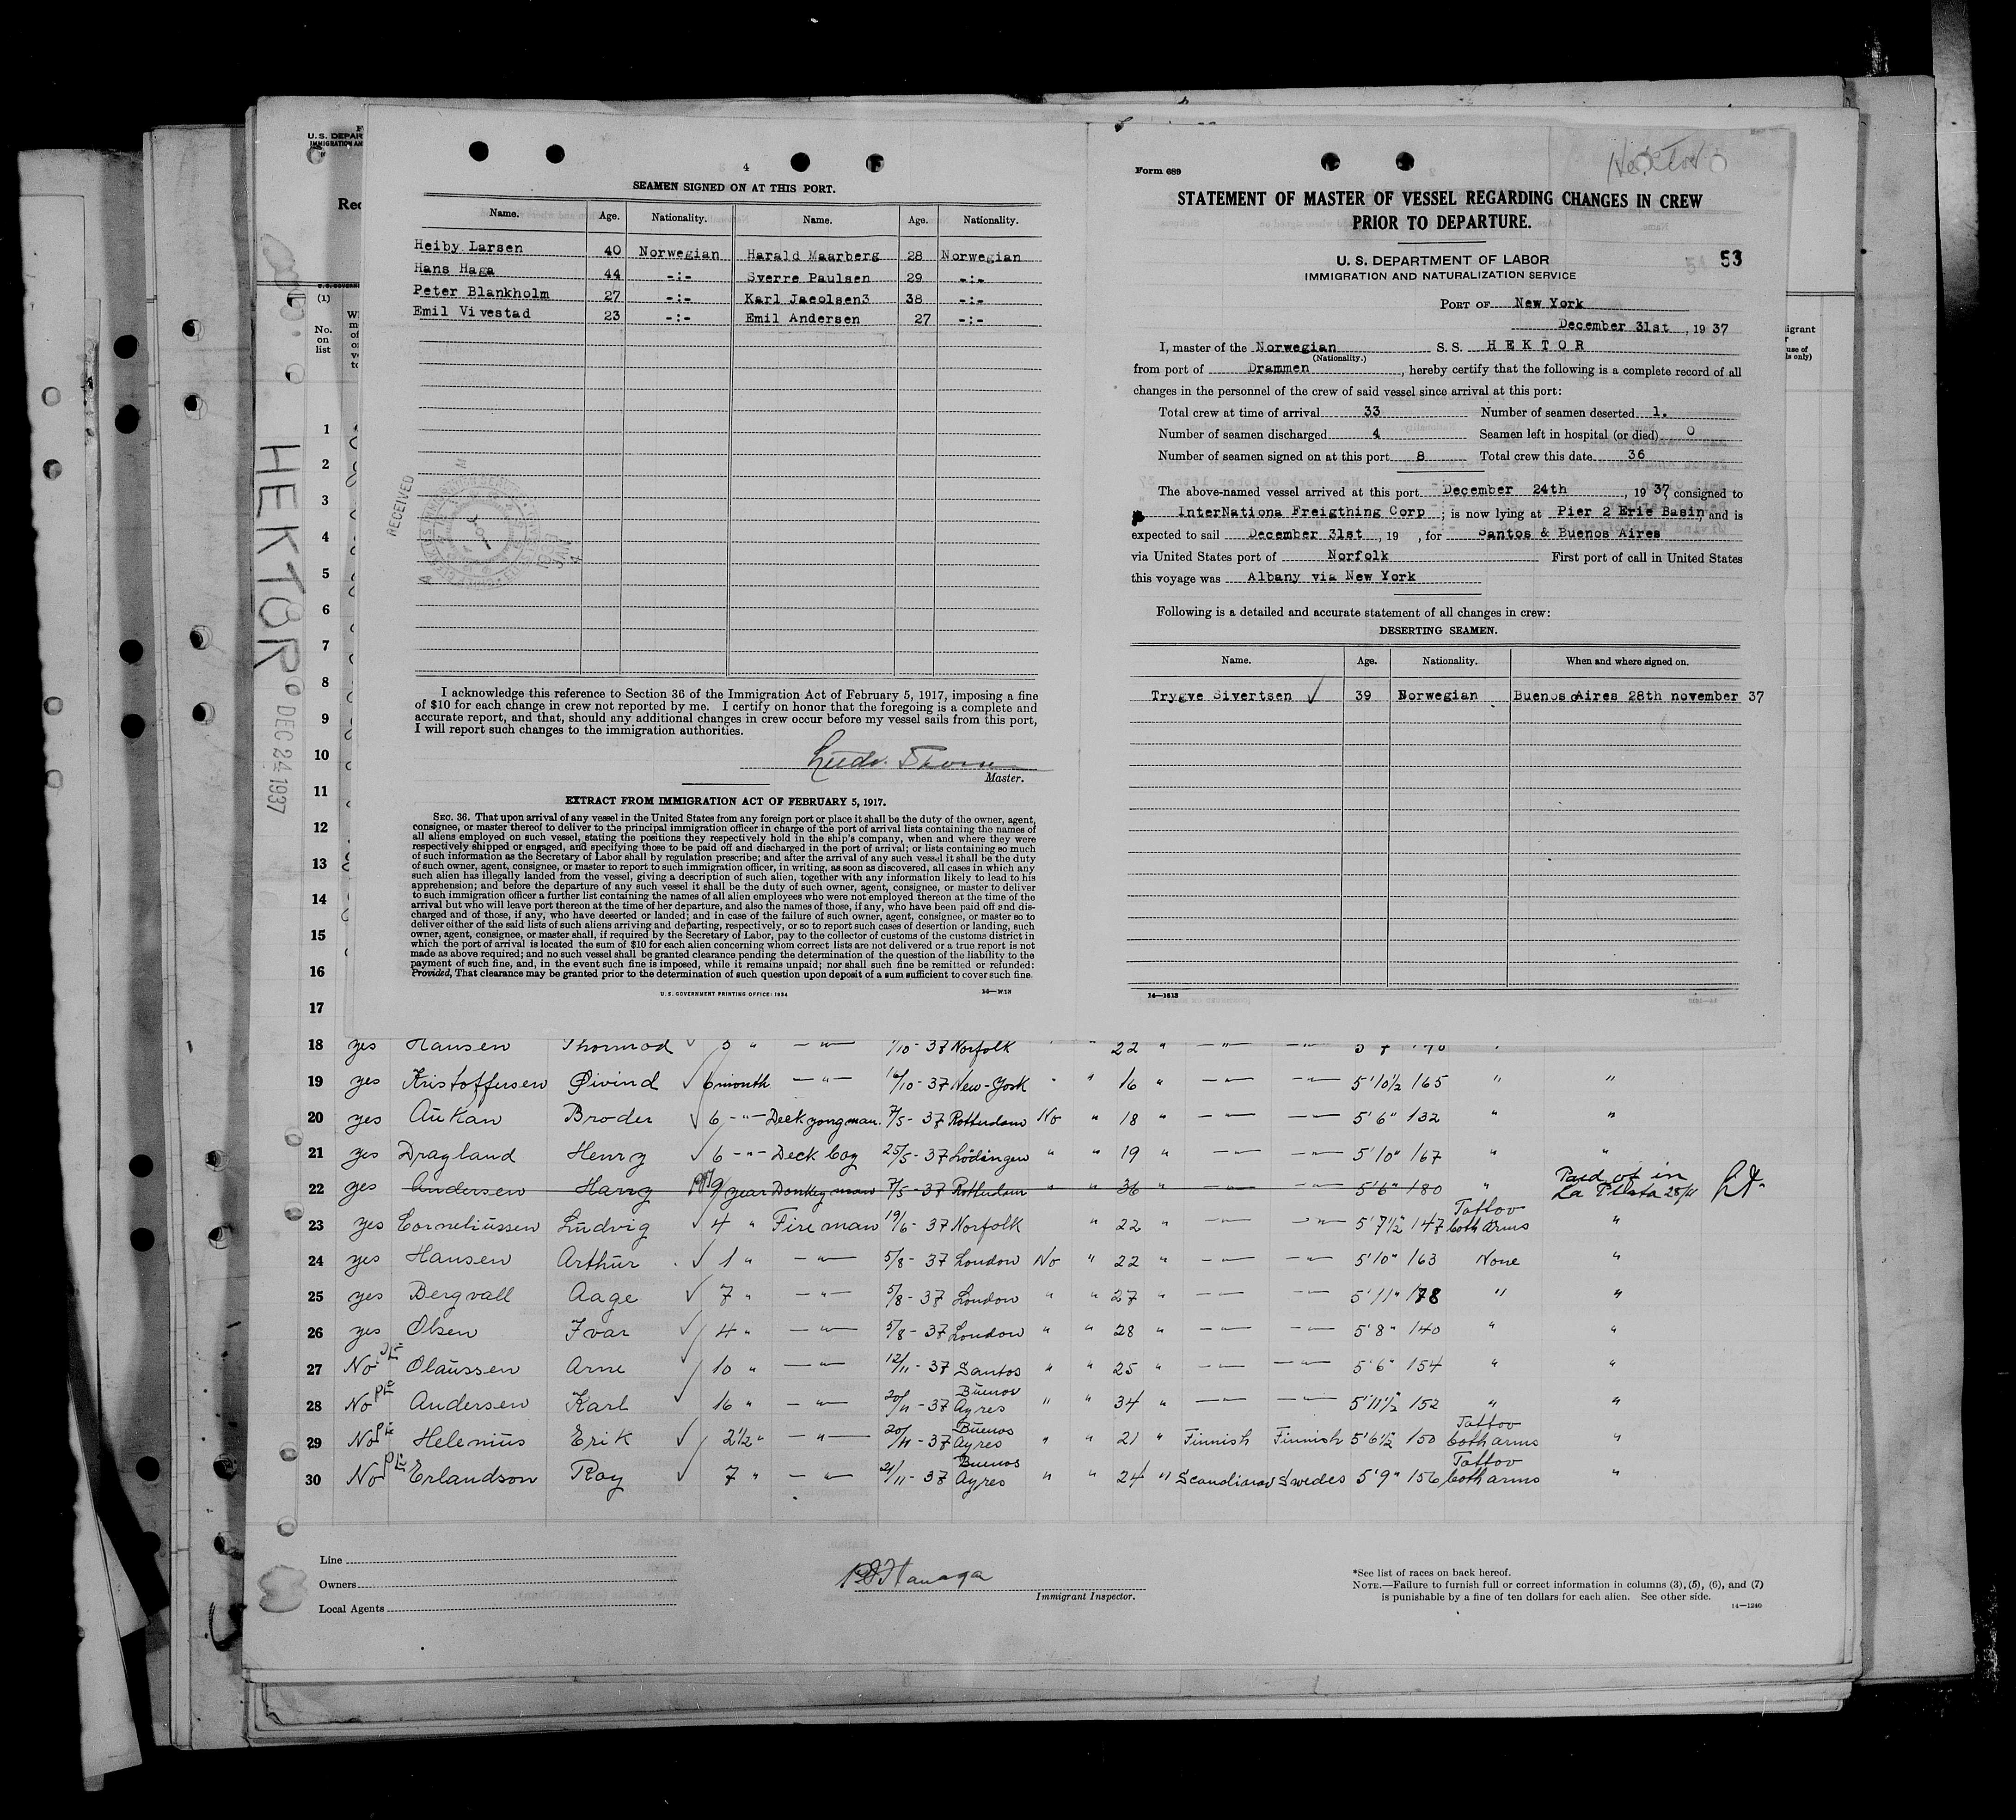 4
SEAMEN SIGNED ON AT THIS PORT.
Name. Age. Nationality. Name. Age. Nationality.
Heiby Larsen 40 Norwegian Harald Maarberg 28 Norwegian
Hans Haga 44 -:- Sverre Paulsen 29 -:-
Peter Blankholm 27 -:- Karl Jacolsen3 38 -:-
Emil Vivestad 23 -:- Emil Andersen 27 -:-
RECEIVED
I acknowledge this reference to Section 36 of the Immigration Act of February 5, 1917, imposing a fine
of $10 for each change in crew not reported by me. I certify on honor that the foregoing is a complete and
accurate report, and that, should any additional changes in crew occur before my vessel sails from this port,
I will report such changes to the immigration authorities.
Master.
EXTRACT FROM IMMIGRATION ACT OF FEBRUARY 5, 1917.
SEC. 36. That upon arrival of any vessel in the United States from any foreign port or place it shall be the duty of the owner, agent,
consignee, or master thereof to deliver to the principal immigration officer in charge of the port of arrival lists containing the names of
all aliens employed on such vessel, stating the positions they respectively hold in the ship's company, when and where they were
respectively shipped or engaged, and specifying those to be paid off and discharged in the port of arrival; or lists containing so much
of such information as the Secretary of Labor shall by regulation prescribe; and after the arrival of any such vessel it shall be the duty
of such owner, agent, consignee, or master to report to such immigration officer, in writing, as soon as discovered, all cases in which any
such alien has illegally landed from the vessel, giving a description of such alien, together with any information likely to lead to his
apprehension; and before the departure of any such vessel it shall be the duty of such owner, agent, consignee, or master to deliver
to such immigration officer a further list containing the names of all alien employees who were not employed thereon at the time of the
arrival but who will leave port thereon at the time of her departure, and also the names of those, if any, who have been paid off and dis-
charged and of those, if any, who have deserted or landed; and in case of the failure of such owner, agent, consignee, or master so to
deliver either of the said lists of such aliens arriving and departing, respectively, or so to report such cases of desertion or landing, such
owner, agent, consignee, or master shall, if required by the Secretary of Labor, pay to the collector of customs of the customs district in
which the port of arrival is located the sum of $10 for each alien concerning whom correct lists are not delivered or a true report is not
made as above required; and no such vessel shall be granted clearance pending the determination of the question of the liability to the
payment of such fine, and, in the event such fine is imposed, while it remains unpaid; nor shall such fine be remitted or refunded:
Provided, That clearance may be granted prior to the determination of such question upon deposit of a sum sufficient to cover such fine.
U. S. GOVERNMENT PRINTING OFFICE: 1934
Hektor
Form 689
STATEMENT OF MASTER OF VESSEL REGARDING CHANGES IN CREW
PRIOR TO DEPARTURE.
U. S. DEPARTMENT OF LABOR
IMMIGRATION AND NATURALIZATION SERVICE
53
PORT OF New York
December 31st , 19 37
I, master of the Norwegian S. S. H E K T O R
(Nationality.)
from port of Drammen , hereby certify that the following is a complete record of all
changes in the personnel of the crew of said vessel since arrival at this port:
Total crew at time of arrival 33 Number of seamen deserted 1.
Number of seamen discharged 4 Seamen left in hospital (or died) 0
Number of seamen signed on at this port 8 Total crew this date 36
The above-named vessel arrived at this port December 24th , 19 37, consigned to
InterNationa Freigthing Corp ; is now lying at Pier 2 Erie Basin, and is
expected to sail December 31st , 19 , for Santos & Buenos Aires
via United States port of Norfolk First port of call in United States
this voyage was Albany via New York
Following is a detailed and accurate statement of all changes in crew:
DESERTING SEAMEN.
Name. Age. Nationality. When and where signed on.
Trygve Sivertsen ✓ 39 Norwegian Buenos Aires 28th november 37
14—1613
U. S. DEPAR
IMMIGRATION AN
Rec
(1)
No. on list
HEKTOR DEC 24 1937
1
2
3
4
5
6
7
8
9
10
11
12
13
14
15
16
17
18 yes Hansen Thormod ✓ 5 " — " — 1/10 - 37 Norfolk " 22 " — " — — " —
19 yes Kristoffersen Øivind ✓ 6 month — " — 16/10 - 37 New-York " " 16 " — " — — " — 5'10½ 165 " "
20 yes Aukan Broder ✓ 6 - " - Deck yong man. 7/5 - 37 Rotterdam No " 18 " — " — — " — 5'6" 132 " "
21 yes Dragland Henry ✓ 6 - " - Deck boy 25/5 - 37 Lödingen " " 19 " — " — — " — 5'10" 167 " "
22 yes Andersen Harry 9 year Donkey man 7/5 - 37 Rotterdam " " 36 " — " — — " — 5'6" 180 " Paid of in La Plata 28/11
23 yes Corneliussen Ludvig ✓ 4 " Fire man 19/6 - 37 Norfolk " 22 " — " — — " — 5'7½" 147 Tattov both arms "
24 yes Hansen Arthur ✓ 1 " — " — 5/8 - 37 London No " 22 " — " — — " — 5'10" 163 None "
25 yes Bergvall Aage ✓ 7 " — " — 5/8 - 37 London " " 27 " — " — — " — 5'11" 178 " "
26 yes Olsen Ivar ✓ 4 " — " — 5/8 - 37 London " " 28 " — " — — " — 5'8" 140 " "
27 No Olaussen Arne ✓ 10 " — " — 12/11 - 37 Santos " " 25 " — " — — " — 5'6" 154 " "
28 No Andersen Karl ✓ 16 " — " — 20/11 - 37 Buenos Ayres " " 34 " — " — — " — 5'11½" 152 " "
29 No Helenius Erik ✓ 2½ " — " — 20/11 - 37 Buenos Ayres " " 21 " Finnish Finnish 5'6½" 150 Tattov both arms "
30 No Erlandson Roy ✓ 7 " — " — 21/11 - 37 Buenos Ayres " " 24 " Scandinav Swedes 5'9" 156 Tattov both arms "
Line
Owners
Local Agents
Immigrant Inspector.
*See list of races on back hereof.
NOTE.—Failure to furnish full or correct information in columns (3), (5), (6), and (7)
is punishable by a fine of ten dollars for each alien. See other side.
14—1240